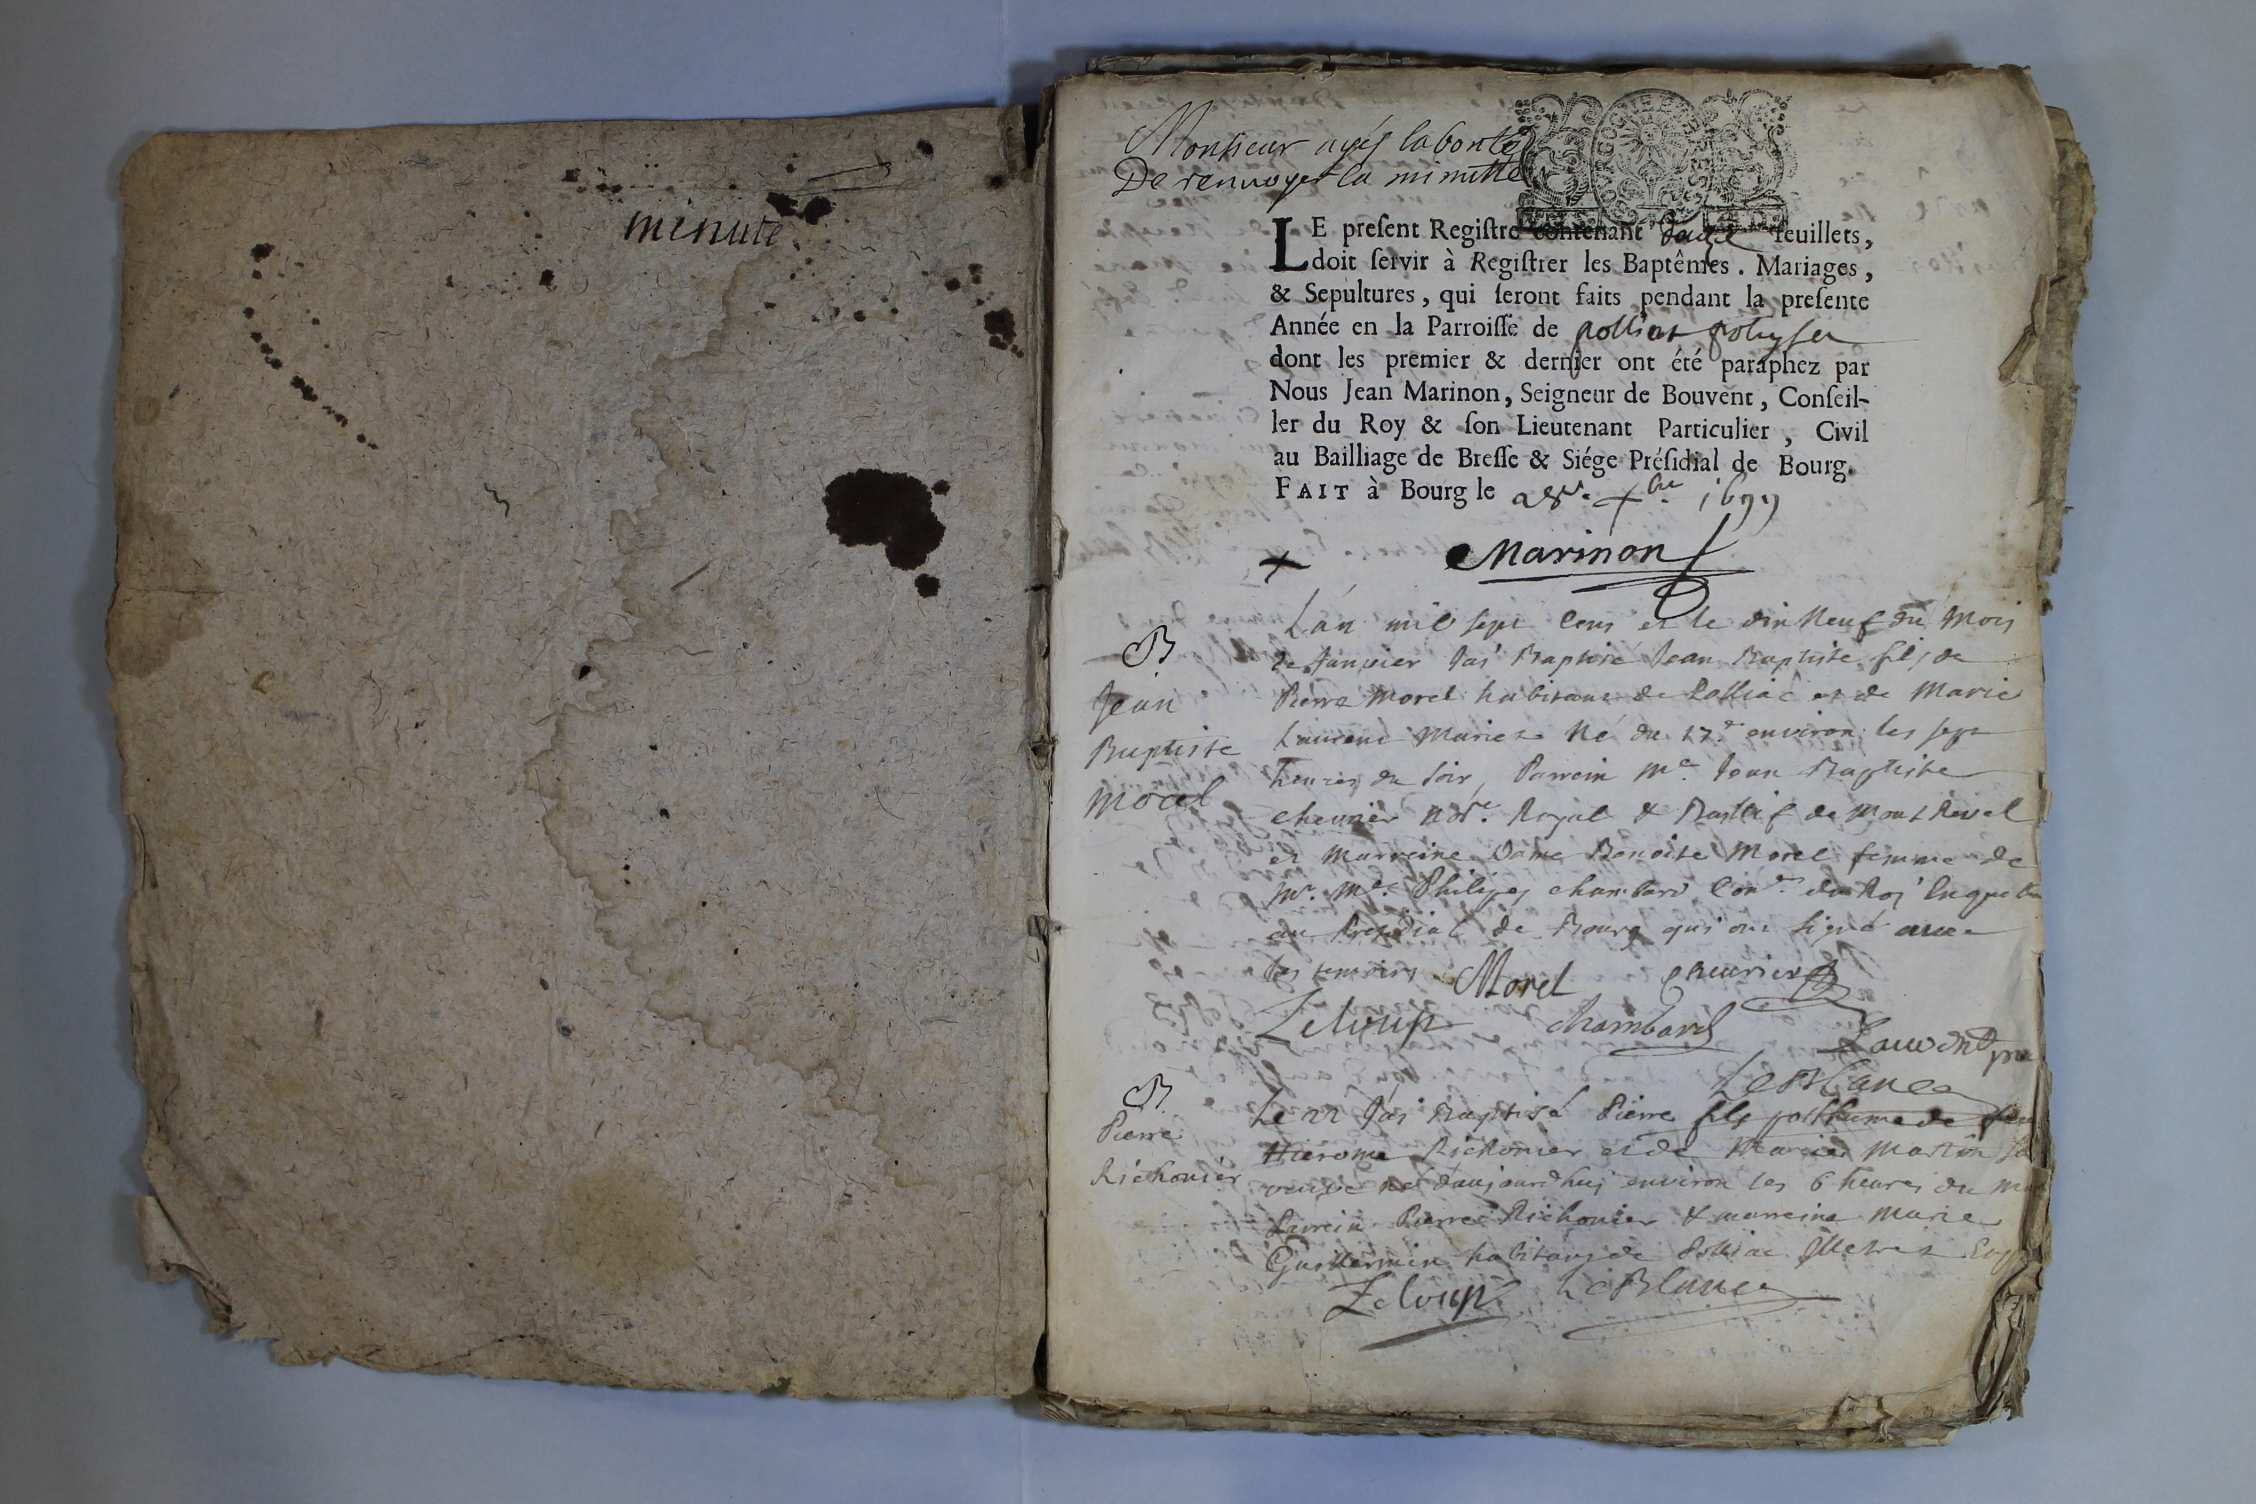 minute
Monsieur ayés la bonté
De renuoyer la minutte
LE preſent Regiſtre contenant douze feuillets,
doit ſervir à Regiſtrer les Baptêmes . Mariages ,
& Sepultures , qui ſeront faits pendant la preſente
Année en la Parroiſſe de polliat
dont les premier & dernier ont été paraphez par
Nous Jean Marinon, Seigneur de Bouvent, Conſeil-
ler du Roy & ſon Lieutenant Particulier , Civil
au Bailliage de Breſſe & Siége Préſidial de Bourg.
FAIT à Bourg le 1699
Marinon
B
Jean
Baptiste
Morel
L'an mil sept Cens et le dix Neuf du Mois
de Janvier J'ai Baptisé Jean Baptiste fils de
Pierre Morel habitant de Polliac et de Marie
Laurent Mariez Né du 17e environ les sept
heures du soir, Parrein Me. Jean Baptiste
Cheurier Nore. Royal & Baillif de Mont Revel
et Marreine Dame Benoite Morel femme de
Mr. Me. Philipes Chambard Conr. du Roj Enqueteur
au Presidial de Bourg qui ont signé avec
les temoins Morel Cheurier
Leloup Chambard
Laurent
LeBlanc
B
Pierre
Richonier
Le 22 J'ai Baptisé Pierre fils posthume de feu
Hierome Richonier et de Marie Martin sa
veuve né d'aujourdhuj environ les 6 heures du
Parrein Pierre Richonier & marreine Marie
Guillermin habitans de Polliac Illetrez
Leloup LeBlanc